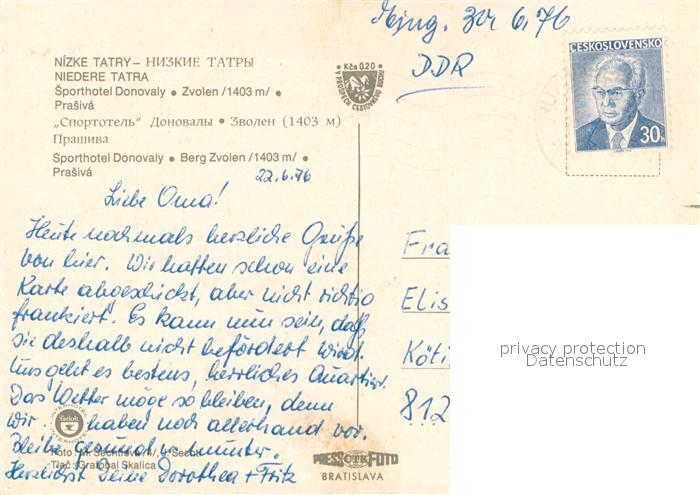 Eing. 30. 6. 76
DDR
ČESKOSLOVENSKO
30h
NÍZKE TATRY – НИЗКИЕ ТАТРЫ
NIEDERE TATRA
Športhotel Donovaly • Zvolen /1403 m/ •
Prašivá
„Спортотель" Доновалы • Зволен (1403 м)
Прашива
Sporthotel Donovaly • Berg Zvolen /1403 m/ •
Prašivá
Kčs 0.20
V PROSPECH CESTOVNÉHO RUCHU
22.6.76
Liebe Oma!
Heute nochmals herzliche Grüße
von hier. Wir hatten schon eine
Karte abgeschickt, aber nicht richtig
frankiert. Es kann nun sein, daß
sie deshalb nicht befördert wird.
Uns geht es bestens, herrliches Quartier.
Das Wetter möge so bleiben, denn
wir haben noch allerhand vor.
Bleibe gesund u. munter.
Herzlichst Deine Dorothea + Fritz
Fra
Elis
Köti
812
privacy protection
Datenschutz
INTERHOTEL
Foto: M. Šechtlová /4/, J. Šechtl
Tlač: Grafobal Skalica
PRESSFOTO
BRATISLAVA